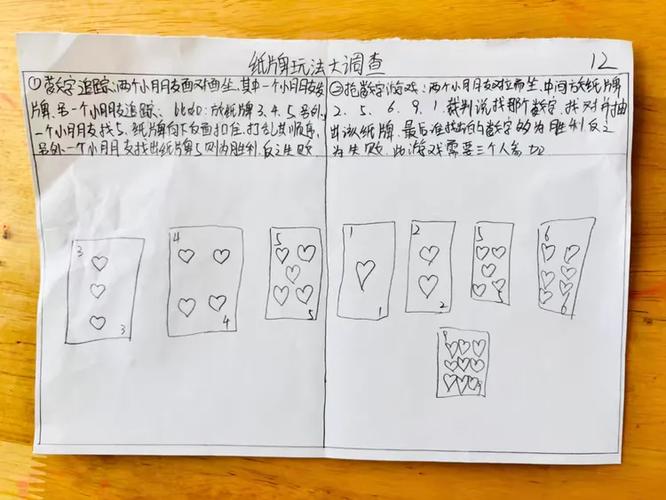 纸牌玩法大调查
12
①数字追踪:两个小朋友面对面坐,其中一个小朋友放
牌,另一个小朋友追踪;:放纸牌3、4、5,另外
一个小朋友找5,纸牌向下面扣住,打乱其顺序,
另外一个小朋友找出纸牌5则为胜利,反之失败
②抢数字游戏:两个小朋友对立而坐,中间放纸牌
2、5、6、9、1,裁判说找那个数字,找对并抽
出该纸牌,最后谁找出的数字多为胜利,反之
为失败,此游戏需要三个人参加
3
3
4
4
5
5
1
1
2
2
5
6
6
9